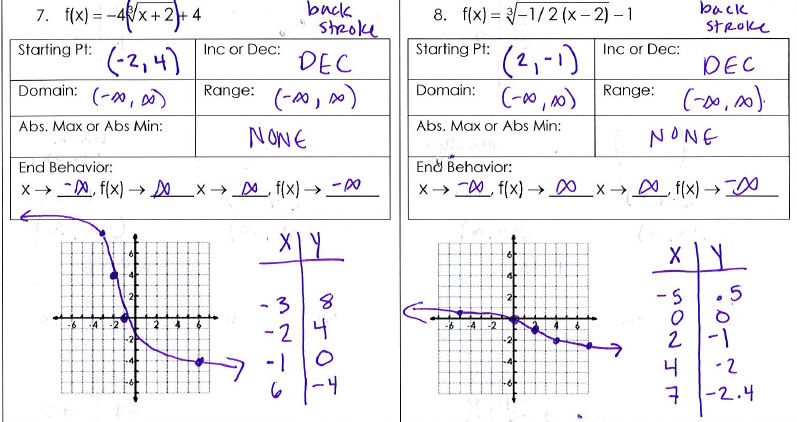 7. f(x) = −4(∛x + 2) + 4
back
stroke
Starting Pt: (-2, 4)
Inc or Dec: DEC
Domain: (-∞, ∞)
Range: (-∞, ∞)
Abs. Max or Abs Min: NONE
End Behavior:
x → -∞, f(x) → ∞ x → ∞, f(x) → -∞
6
4
2
-6 -4 -2 2 4 6
-2
-4
-6
X Y
-3 8
-2 4
-1 0
6 -4
8. f(x) = ∛−1/2 (x − 2) − 1
back
stroke
Starting Pt: (2, -1)
Inc or Dec: DEC
Domain: (-∞, ∞)
Range: (-∞, ∞).
Abs. Max or Abs Min: NONE
End Behavior:
x → -∞, f(x) → ∞ x → ∞, f(x) → -∞
6
4
2
-6 -4 -2 2 4 6
-2
-4
-6
X Y
-5 .5
0 0
2 -1
4 -2
7 -2.4